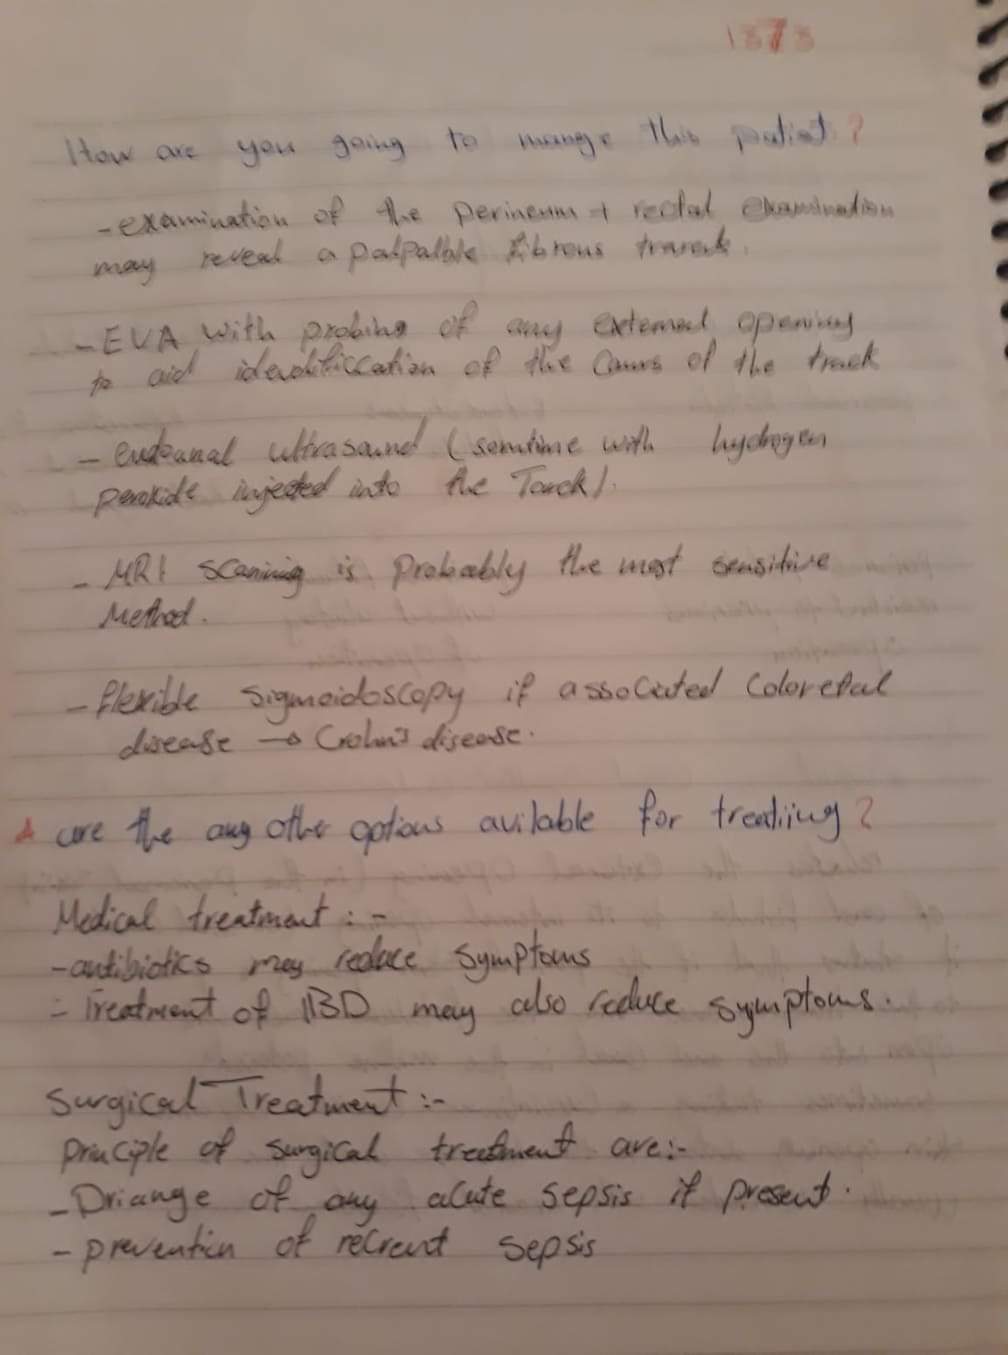 1373
How are you going to mange this patiet?
- examination of the perineum + rectal examination
may reveal a palpalble fibrous tranck.
- EUA with probing of any external opening
to aid idendtificcation of the Cours of the track
- endoanal ultrasound (somtime with hydrogen
peroxide injected into the Tarck).
- MRI scaning is probably the most sensitive
Method.
- flexible sigmoidoscopy if assocated Coloretal
disease → Crohn's disease.
are the any other options avilable for treatiing?
Medical treatment :-
- antibiotics may reduce symptoms
- Treatment of IBD may also reduce symptoms.
Surgical Treatment :-
Principle of surgical treatment are:-
- Driange of any acute sepsis if present.
- prevention of recrent sepsis